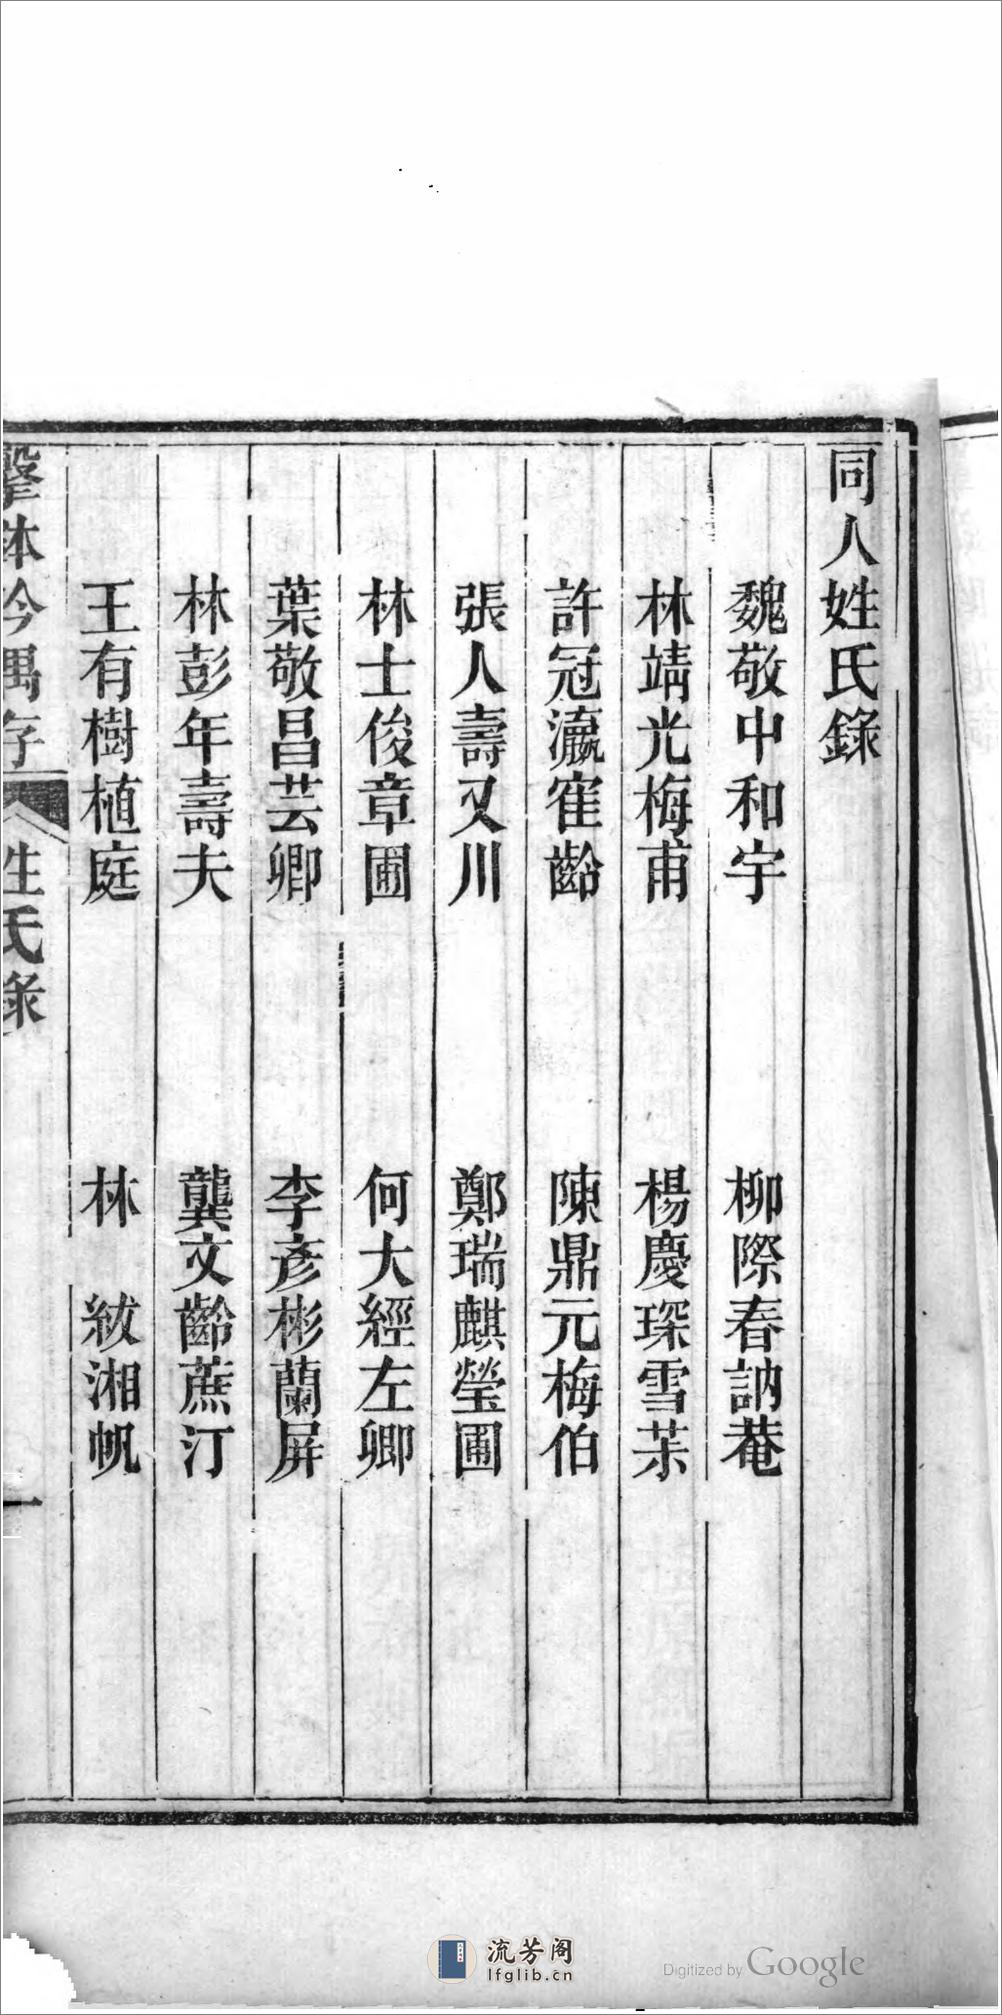 同人姓氏錄
魏敬中和宇　柳際春訥菴
林靖光梅甫　楊慶琛雪茮
許冠瀛隺齡　陳鼎元梅伯
張人壽又川　鄭瑞麒瑩圃
林士俊章圃　何大經左卿
葉敬昌芸卿　李彥彬蘭屏
林彭年壽夫　龔文齡蔗汀
王有樹植庭　林　紱湘帆
擊鉢吟偶存　姓氏錄　一
流芳阁
lfglib.cn
Digitized by Google